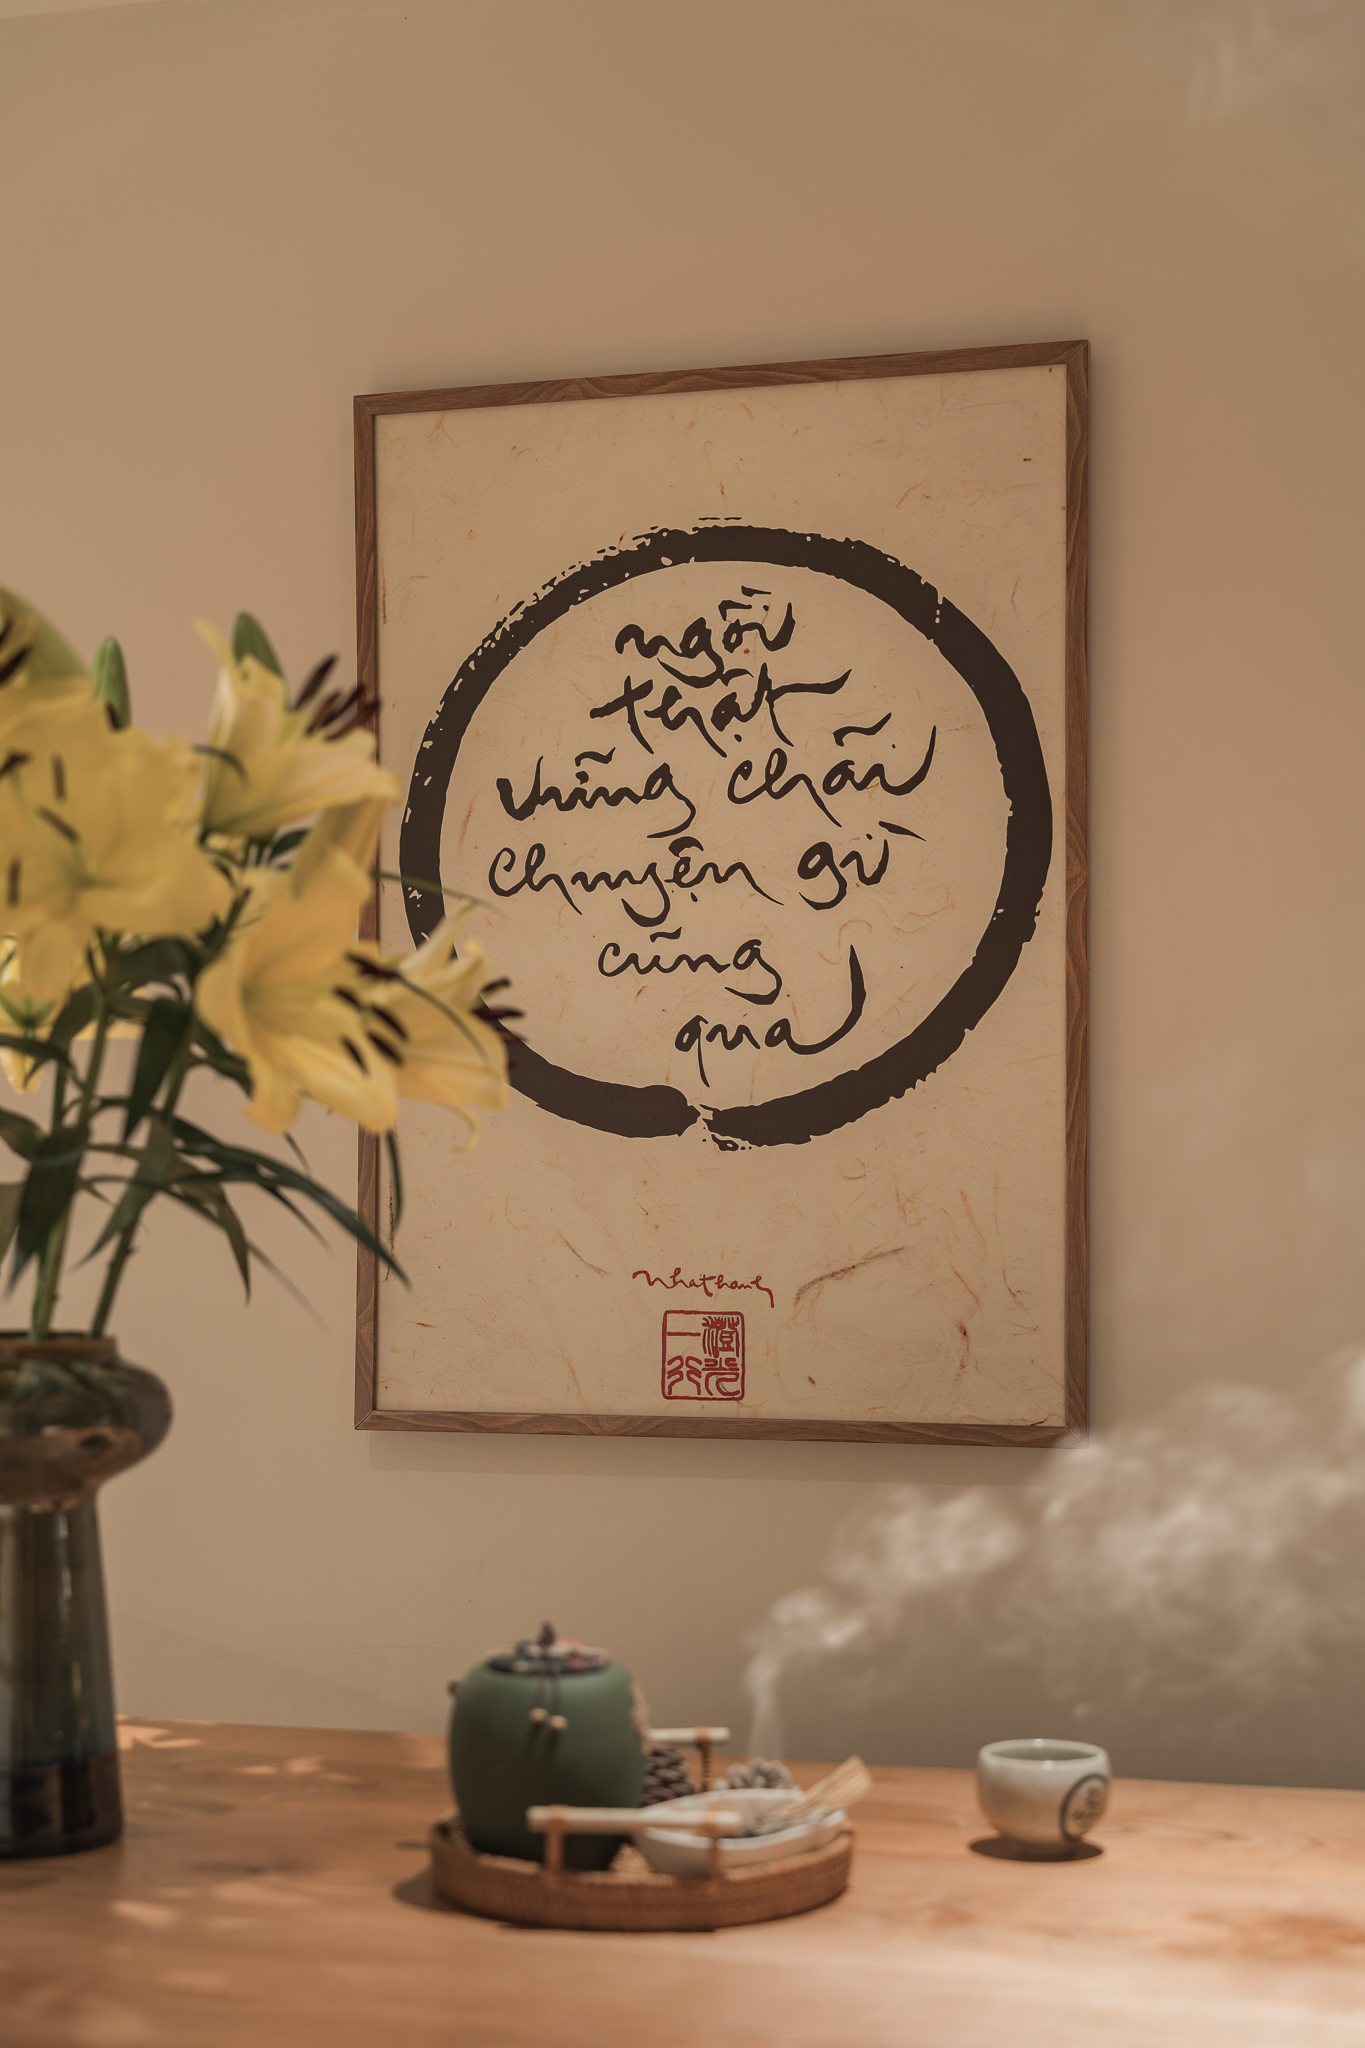 ngồi
thật
vững chãi
chuyện gì
cũng
qua
nhathanh
一澄
行光